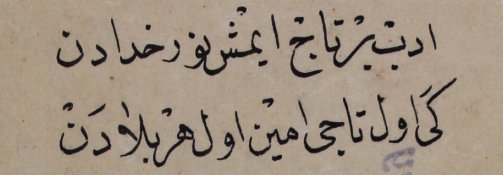 ادب بر تاج ايمش نور خدادن
كى اول تاجى امين اول هر بلادن